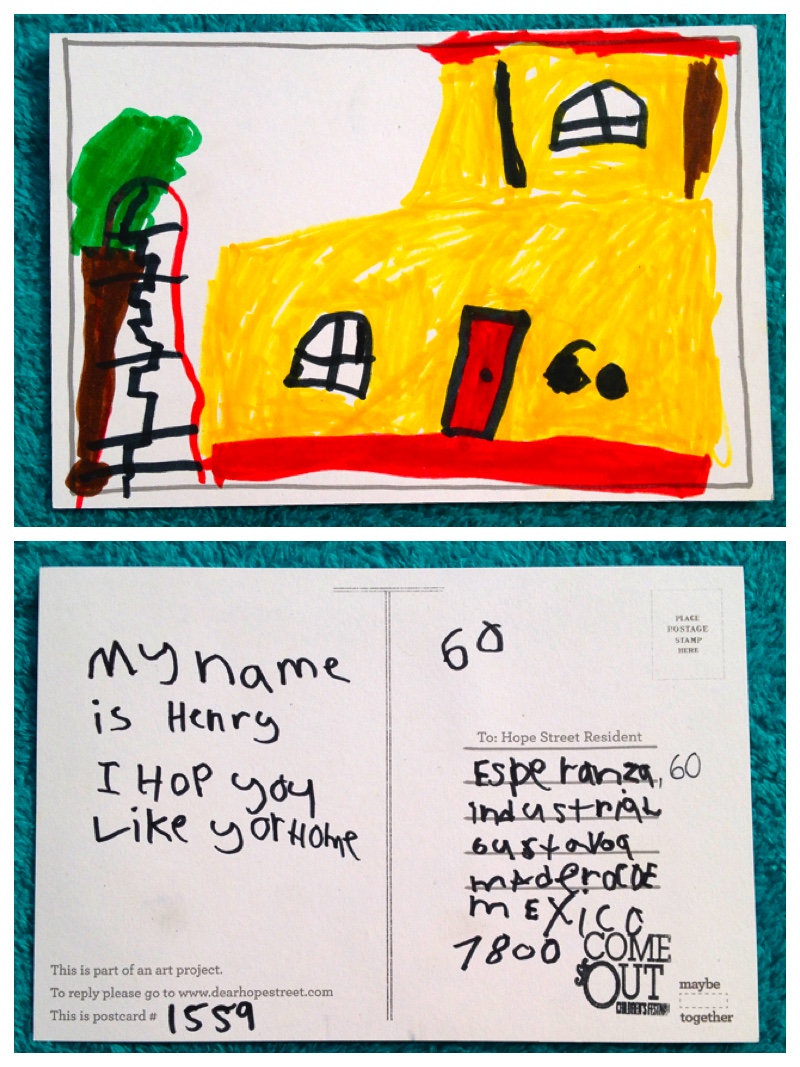 60
my name
is Henry
I HOP you
Like yorHome
This is part of an art project.
To reply please go to www.dearhopestreet.com
This is postcard # 1559
60
PLACE
POSTAGE
STAMP
HERE
To: Hope Street Resident
Esperanza, 60
industrial
gustavoa
maderoCDE
mEXico
7800
COME
OUT
CHILDREN'S FESTIVAL
maybe
together